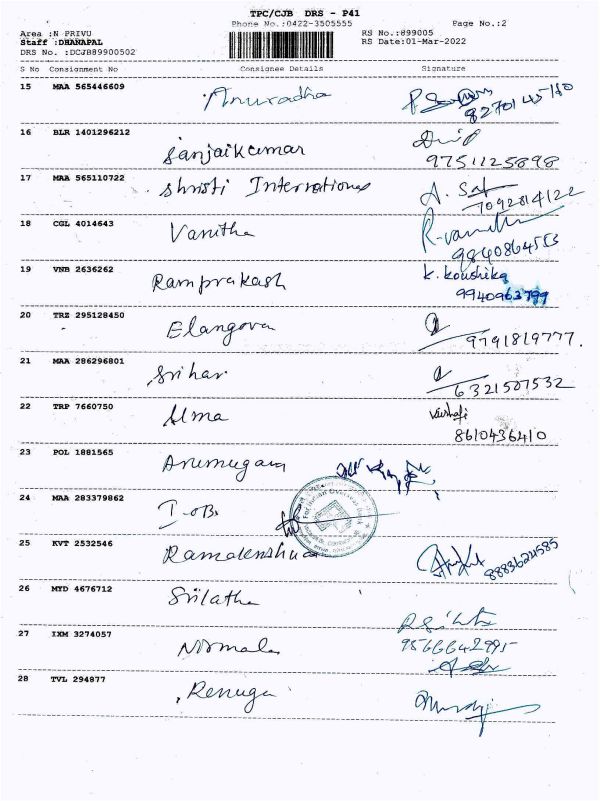 TPC/CJB DRS - P41
Phone No.:0422-3505555
Page No.:2
Area :N PRIVU
RS No.:899005
Staff :DHANAPAL
RS Date:01-Mar-2022
DRS No. :DCJB89900502
S No Consignment No Consignee Details Signature
15 MAA 565446609 Anuradha
16 BLR 1401296212 Sanjaikumar
9751125898
17 MAA 565110722 Shristi
7092814122
18 CGL 4014643 Vanitha R.vanitha
9840864553
19 VNB 2636262 Ramprakash K. Koushika
9940963799
20 TRZ 295128450 Elangovan
9791819777.
21 MAA 286296801 Srihari
6321507532
22 TRP 7660750 Uma
8610436410
23 POL 1881565 Arumugam
24 MAA 283379862 I-OB
25 KVT 2532546
8883624585
26 MYD 4676712 Srilatha
27 IXM 3274057 Nirmala
9566642995
28 TVL 294877 Renuga